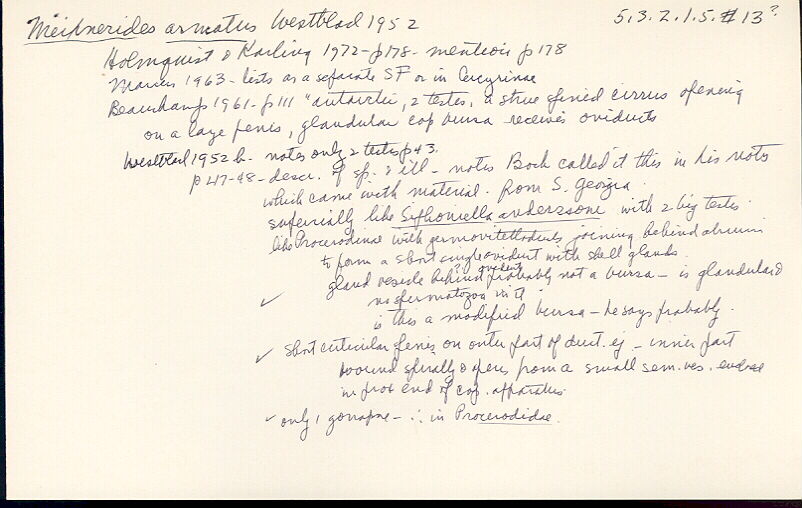 Meixnerides armatus Westblad 1952 5.3.2.1.5. #13?
Holmquist & Karling 1972 - p178 - mentions p178
Marcus 1963 - lists as a separate SF or in Cercyrinae
Beauchamp 1961 - p111 "antarctic, 2 testes, a strue spined cirrus opening
on a large penis, glandular cop bursa receives oviducts
Westblad 1952 b - notes only 2 testes p43.
p 47-48 - descr. of sp. & ill - notes Bock called it this in his notes
which came with material. from S. Georgia.
superially like Syphoniella anderssone with 2 big testes.
like Procerodinae with germovitelloducts joining behind atrium
to form a short single oviduct with shell glands.
gland vesicle behind ? oviducts probably not a bursa - is glandulard
no spermatozoa in it
✓ is this a modified bursa - he says probably.
✓ short cuticular penis on outer part of duct. ej - inner part
wound spirally & opens from a small sem. ves.
in prox end of cop. apparatus.
✓ only 1 gonopore - ∴ in Procerodidae.